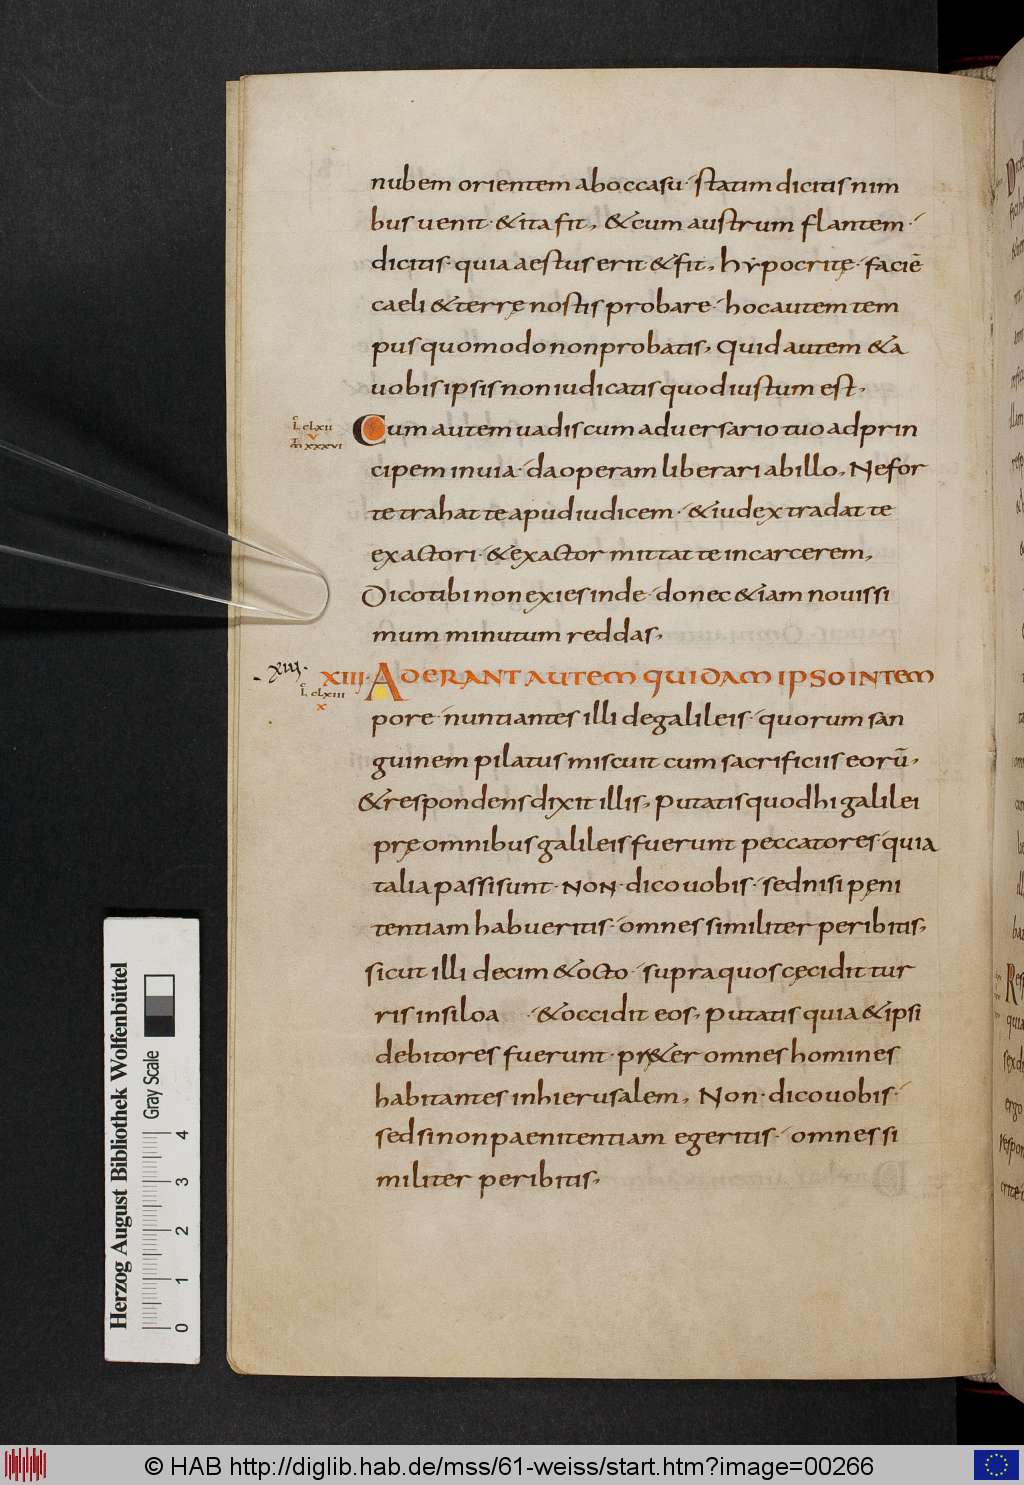 nubem orientem ab occasu · statim dicitis nim
bus uenit · & ita fit, & cum austrum flantem ·
dicitis · quia aestus erit & fit, hypocritę · faciē
caeli & terrę nostis probare · hoc autem tem
pus quomodo non probatis, Quid autem & a
uobis ipsis non iudicatis quod iustum est,
L clxii
v
m xxxvi
Cum autem uadis cum aduersario tuo ad prin
cipem in uia · da operam liberari ab illo, Ne for
te trahat te apud iudicem · & iudex tradat te
exactori · & exactor mittat te in carcerem,
Dico tibi non exies inde · donec &iam nouissi
mum minutum reddas,
xiii· XIII· ADERANT AUTEM QUIDAM IPSO IN TEM
L clxiii
x
pore · nuntiantes illi de galileis · quorum san
guinem pilatus miscuit cum sacrificiis eorū,
& respondens dixit illis, Putatis quod hi galilei
prę omnibus galileis fuerunt peccatores · quia
talia passi sunt · NON · dico uobis · sed nisi pęni
tentiam habueritis · omnes similiter peribitis,
sicut illi decim & octo · supra quos cęcidit tur
ris in siloa · & occidit eos, Putatis quia & ipsi
debitores fuerunt · prę&er omnes homines
habitantes in hierusalem, Non · dico uobis ·
sed si non paenitentiam egeritis · omnes si
militer peribitis,
Herzog August Bibliothek Wolfenbüttel
Gray Scale
0 1 2 3 4
© HAB http://diglib.hab.de/mss/61-weiss/start.htm?image=00266